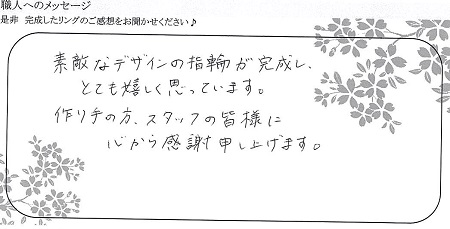 職人へのメッセージ
是非 完成したリングのご感想をお聞かせください♪
素敵なデザインの指輪が完成し、
とても嬉しく思っています。
作り手の方、スタッフの皆様に
心から感謝申し上げます。